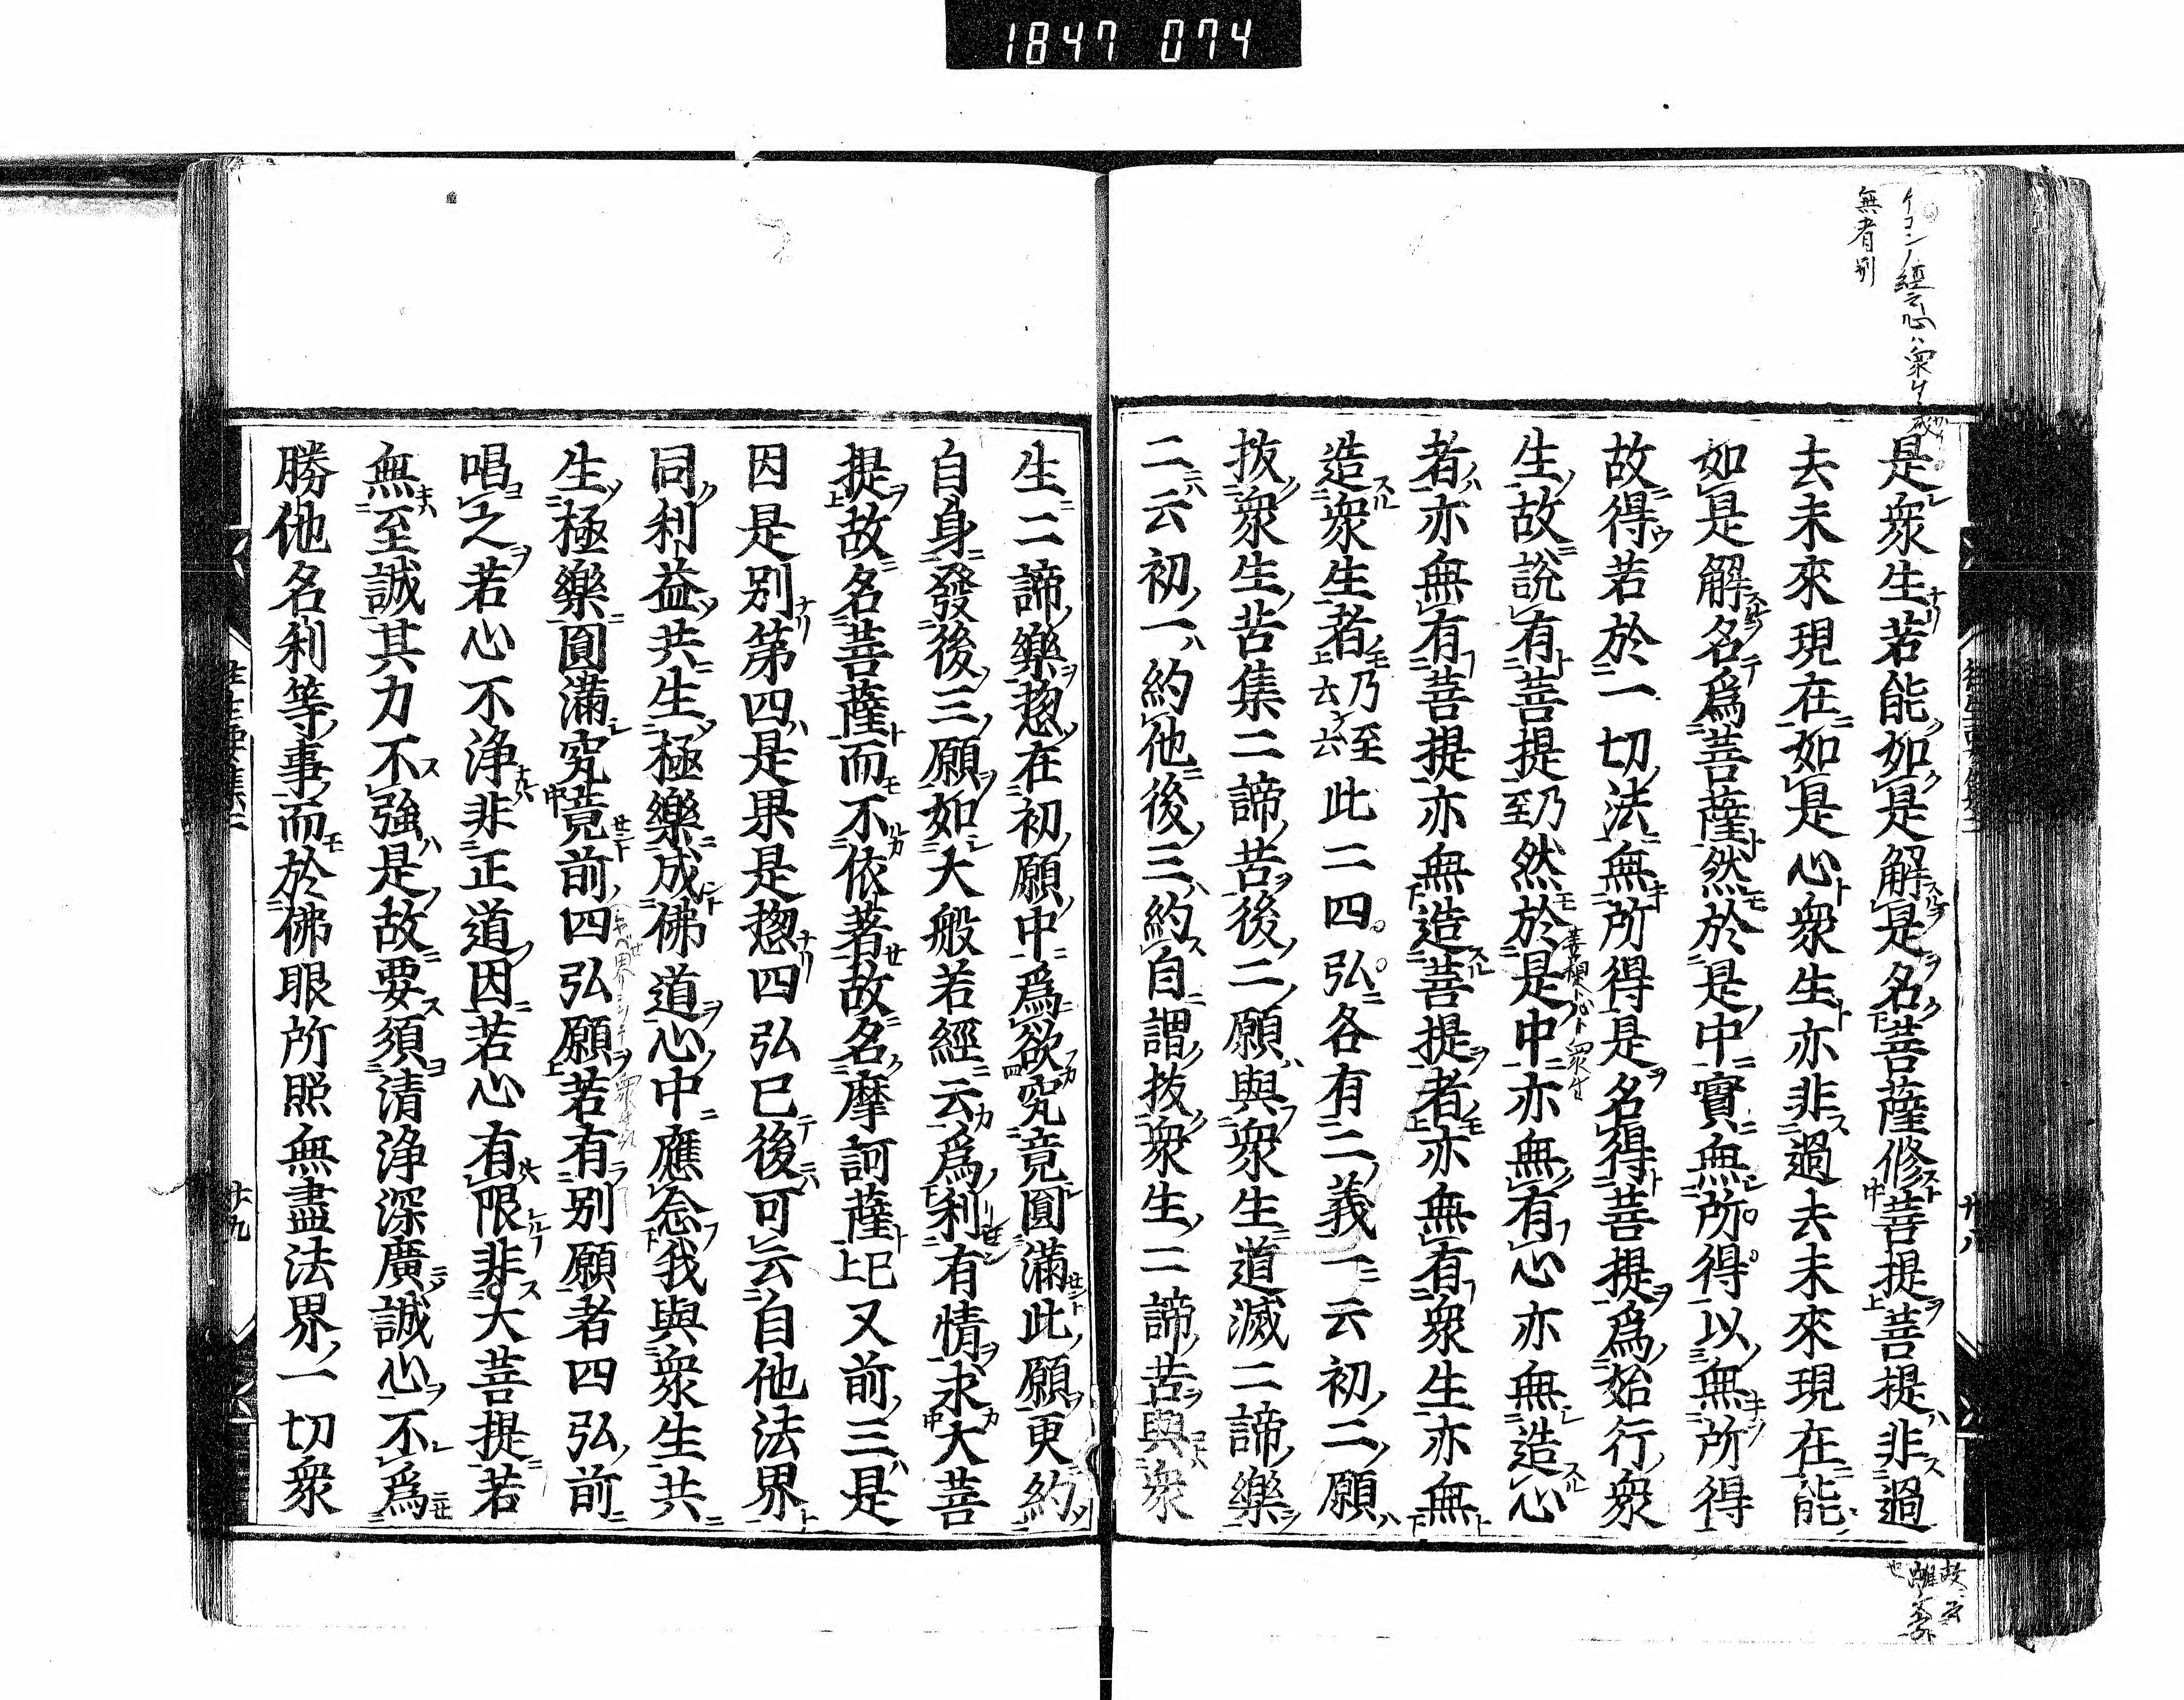 1847 074
無者別
是衆生若能如是解是名菩薩修菩提菩提非過
去未來現在如是心衆生亦非過去未來現在能
如是解名爲菩薩然於是中實無所得以無所得
故得若於一切法無所得是名得菩提爲始行衆
生故說有菩提乃至然於是中亦無有心亦無造心
者亦無有菩提亦無造菩提者亦無有衆生亦無
造衆生者乃至云云此二四弘各有二義一云初二願
拔衆生苦集二諦苦後二願與衆生道滅二諦樂
二云初一約他後三約自謂拔衆生二諦苦與衆
生二諦樂惣在初願中爲欲究竟圓滿此願更約
自身發後三願如大般若經云爲利有情求大菩
提故名菩薩而不依著故名摩訶薩已上又前三是
因是別第四是果是惣四弘已後可云自他法界
同利益共生極樂成佛道心中應念我與衆生共
生極樂圓滿究竟前四弘願若有別願者四弘前
唱之若心不淨非正道因若心有限非大菩提若
無至誠其力不強是故要須清淨深廣誠心不爲
勝他名利等事而於佛眼所照無盡法界一切衆